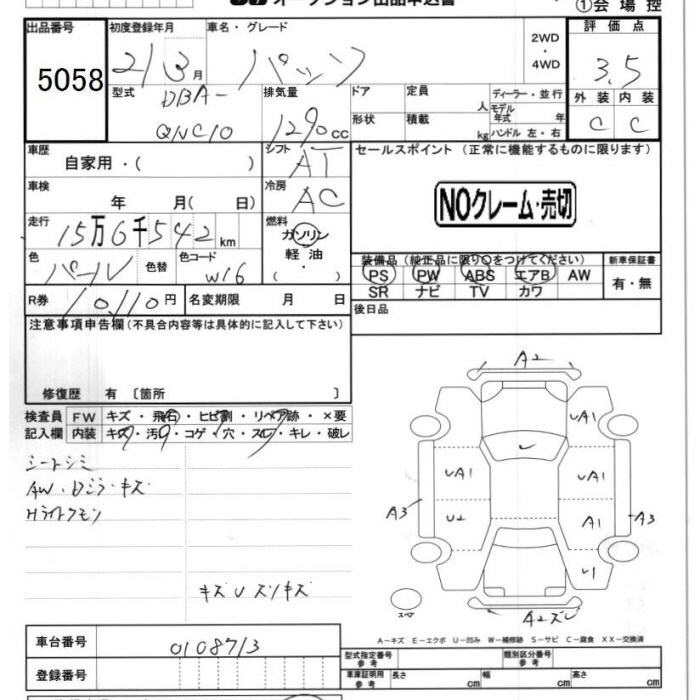 オークション出品申込書
①会場控
出品番号 初度登録年月 車名・グレード 2WD・4WD 評価点
5058 21 3月 パッソ 3.5
型式 DBA-QNC10 排気量 1290cc ドア 定員 人 ディーラー・並行 外装 内装
形状 積載 kg モデル年式 年 ハンドル 左・右 C C
車歴 自家用・( ) シフト AT セールスポイント (正常に機能するものに限ります)
車検 年 月( 日) 冷房 AC NOクレーム・売切
走行 15万6千542km 燃料 ガソリン 軽油 ( )
色 パール 色替 色コード W16
装備品 (純正品に限り○をつけてください) 新車保証書
PS PW ABS エアB AW 有・無
SR ナビ TV カワ
R券 10,110円 名変期限 月 日 後日品
注意事項申告欄 (不具合内容等は具体的に記入して下さい)
修復歴 有 〔箇所 〕
検査員 FW キズ・飛石・ヒビ割・リペア跡・×要
記入欄 内装 キズ・汚れ・コゲ・穴・スレ・キレ・破レ
シートシミ
AW・Dミラーキズ
Hライトクモリ
A2
UA1
UA1 UA1
A3 U2 A1 A3
U1
スペア A2ズレ
A-キズ E-エクボ U-凹み W-補修跡 S-サビ C-腐食 XX-交換済
車台番号 0108713
登録番号
型式指定番号 参考 類別区分番号 参考
車庫証明用 参考 長さ cm 幅 cm 高さ cm